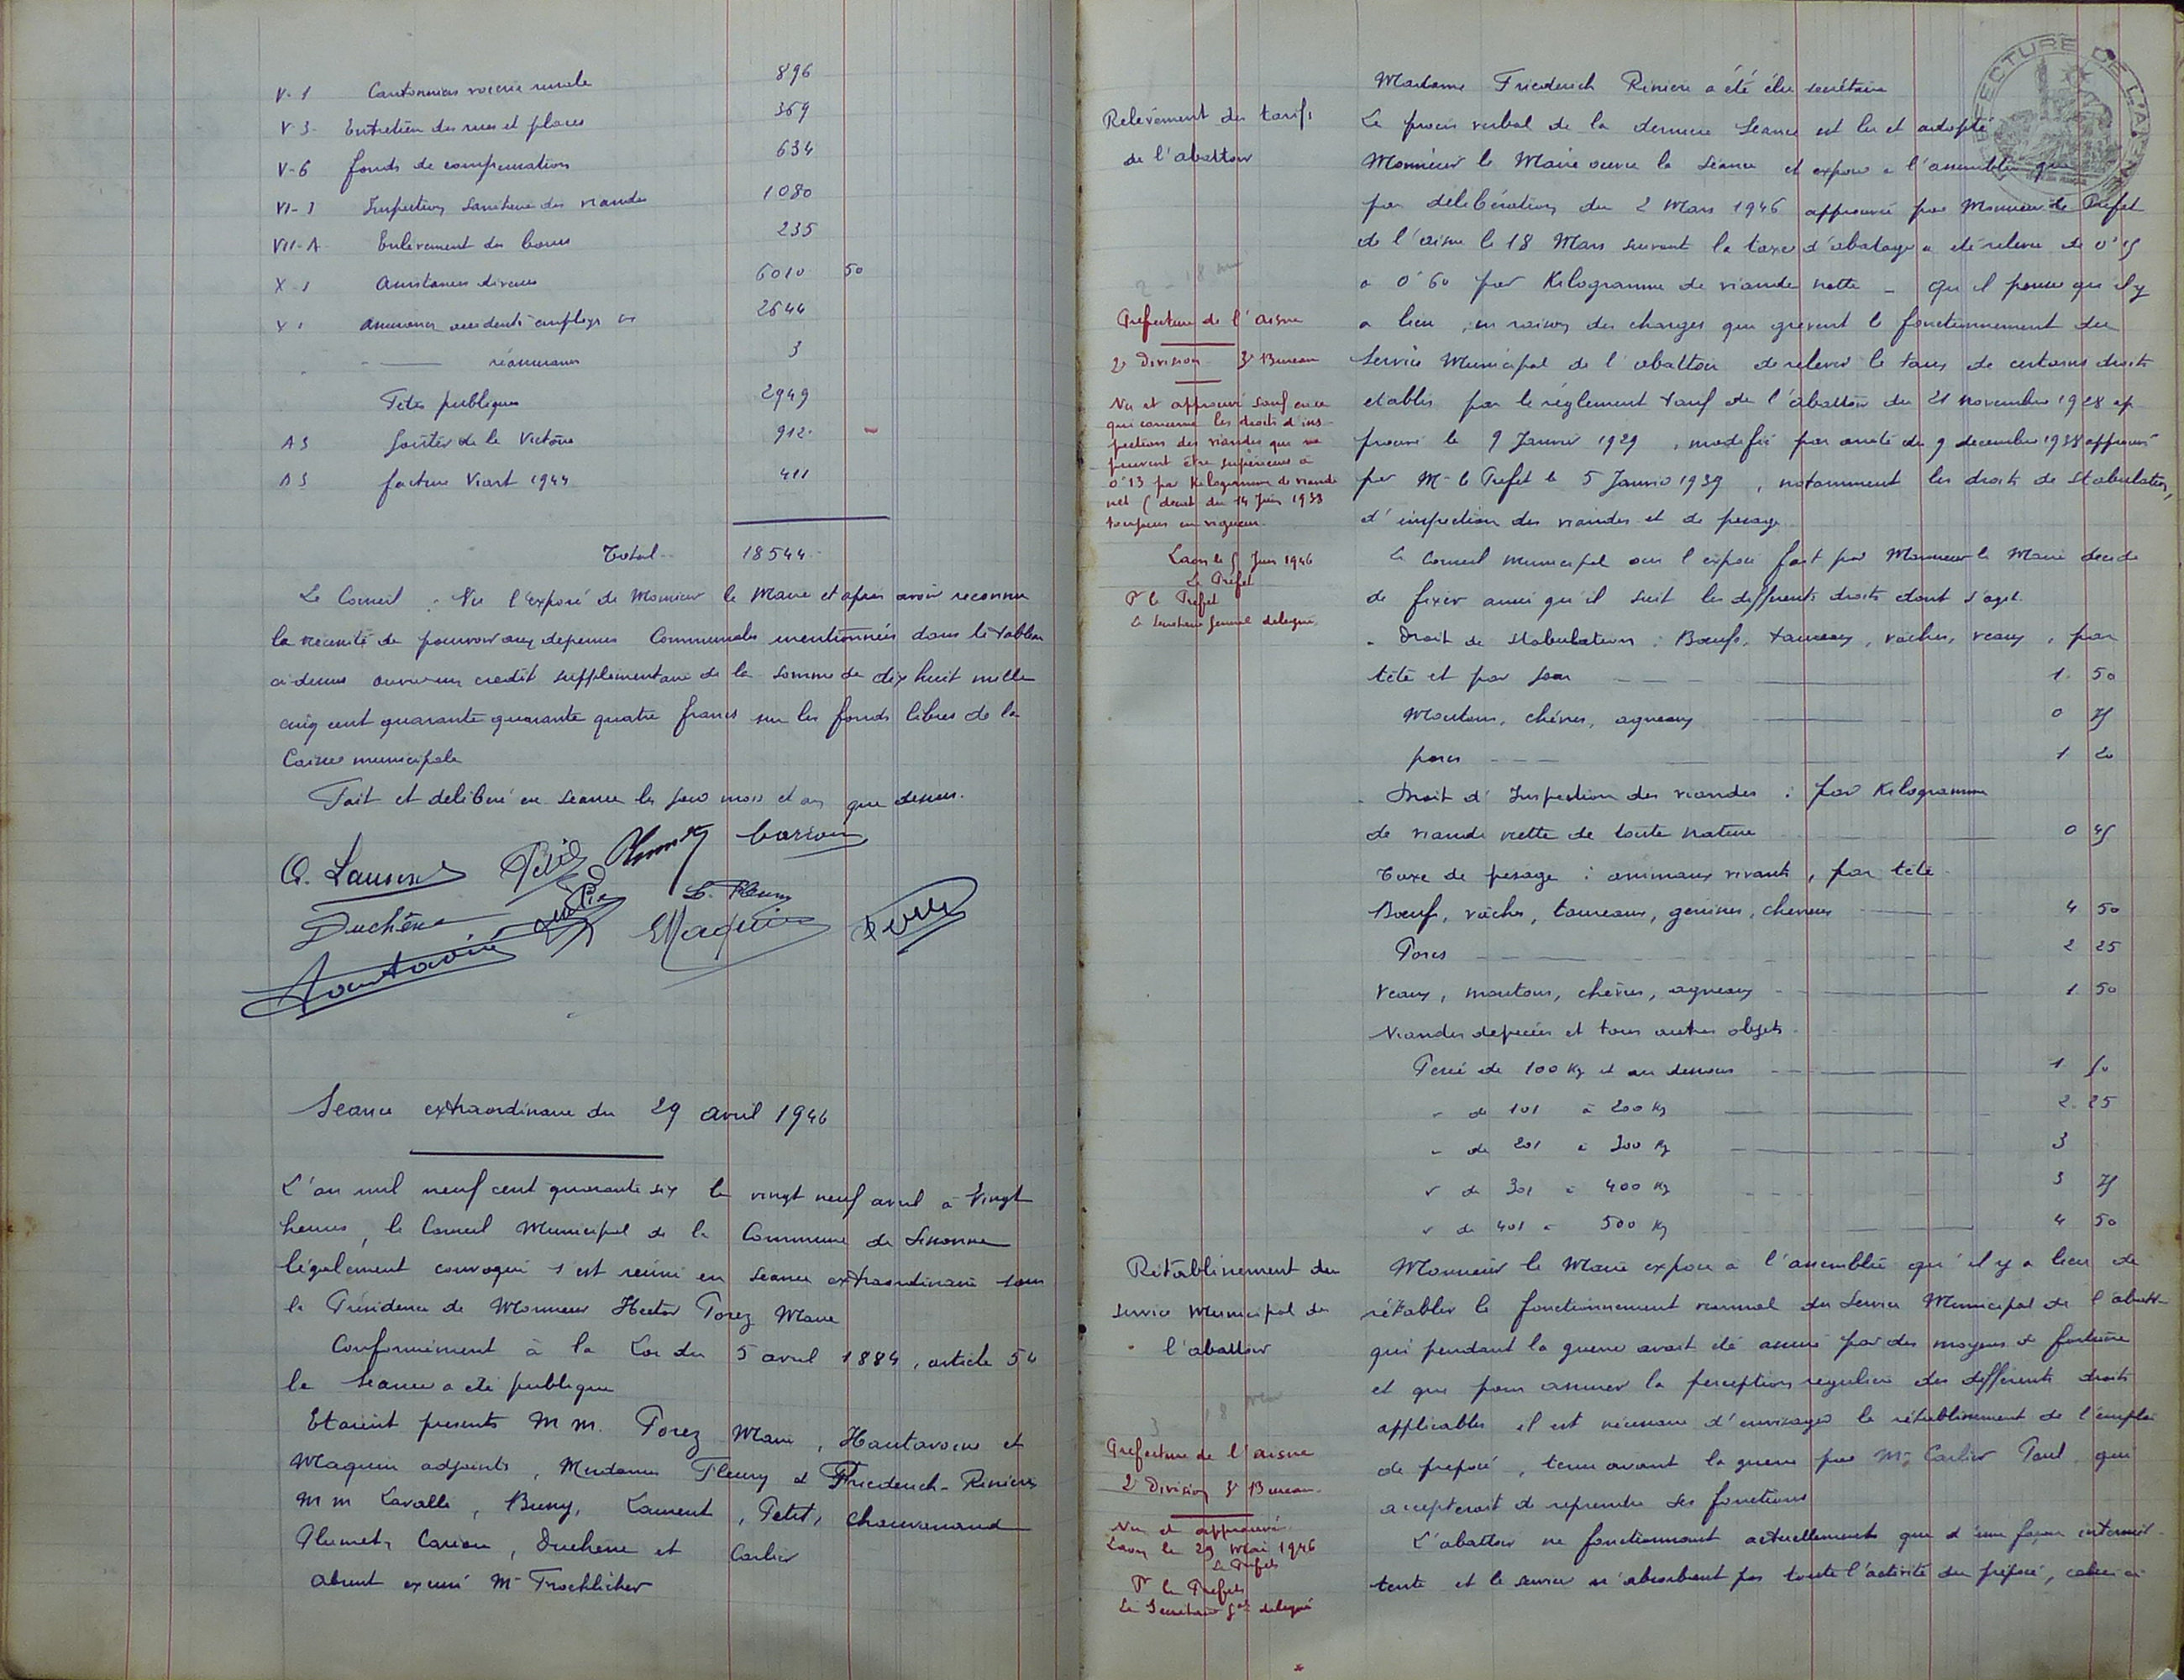 V-1 Cantonniers voirie rurale 896
V-3- Entretien des rues et places 369
V-6 fonds de compensation 634
VI-3 Inspection Sanitaire des viandes 1080
VII-A Enlevement des boues 235
X-1 Assistances diverses 6010 50
Assurances accidents employes 2644
réassurance 3
Fêtes publiques 2949
AS Goûter de la Victoire 912
AS facture Viart 1944 411
Total 18544
Le Conseil : Vu l'exposé de Monsieur le Maire et apres avoir reconnu
la nécessité de pourvoir aux depenses Communales mentionnées dans le tableau
ci-dessus ouvre un credit supplementaire de la somme de dix huit mille
cinq cent quarante quarante quatre francs sur les fonds libres de la
Caisse municipale
Fait et deliberé en seance les jour mois et an que dessus.
Duchêne
Hautavoine
Seance extraordinaire du 29 avril 1946
L'an mil neuf cent quarante six le vingt neuf avril à vingt
heures, le Conseil Municipal de la Commune de Sissonne
légalement convoqué s'est reuni en seance extraordinaire sous
la Présidence de Monsieur Hector Porez Maire
Conformément à la Loi du 5 avril 1884, article 54
la seance a été publique
Etaient presents M m. Porez Maire, Hautavoine et
Maquin adjoints, Mesdames Fleury et Friederich-Riniere
M m Lavalle, Buny, Laurent, Petit, Chauvenand
Plumet, Cariou, Duchene et Carlier
Absent excusé Mr Froehlicher
Madame Friederich Riniere a été élue secrétaire
Relèvement des tarifs
de l'abattoir
Le procès verbal de la derniere seance est lu et adopté
PREFECTURE DE L'AISNE
Monsieur le Maire ouvre la séance et expose à l'assemblée que
par délibération du 2 Mars 1946 approuvée par Monsieur le Préfet
de l'aisne le 18 Mars suivant la taxe d'abatage a été relevée de 0f15
a 0f60 par Kilogramme de viande nette - qu'il pense qu'il y
a lieu, en raison des charges qui grevent le fonctionnement du
Service Municipal de l'abattoir de relever le taux de certains droits
etablis par le réglement tarif de l'abattoir du 21 novembre 1928 ap
prouvé le 9 Janvier 1929, modifié par arreté du 9 decembre 1938 approuvé
par Mr le Prefet le 5 Janvier 1939, notamment les droits de stabulation,
d'inspection des viandes et de pesage
Prefecture de l'Aisne
2e Division 3e Bureau
Vu et approuvé sauf en ce
qui concerne les droits d'ins-
pection des viandes qui ne
peuvent être supérieurs à
0f13 par Kilogramme de viande
net (decret du 14 Juin 1938
toujours en vigueur.
Laon le 5 Juin 1946
Le Préfet
Pr le Prefet
Le Secretaire General delegué,
Le Conseil municipal ouï l'exposé fait par Monsieur le Maire decide
de fixer ainsi qu'il suit les differents droits dont s'agit.
- Droit de stabulation : Bœufs, taureaux, vaches, veaux, par
tête et par jour 1. 50
Moutons, chévres, agneaux 0 75
porcs 1 20
- Droit d'Inspection des viandes : par Kilogramme
de viande nette de toute nature 0 45
Taxe de pesage : animaux vivants, par tête
Bœufs, vaches, taureaux, genisses, chevaux 4 50
Porcs 2 25
Veaux, moutons, chèvres, agneaux 1 50
Viandes depecées et tous autres objets
Pesée de 100 Kg et au dessous 1 50
" de 101 à 200 Kg 2. 25
" de 201 à 300 Kg 3
" de 301 à 400 Kg 3 75
" de 401 à 500 Kg 4 50
Rétablissement du
service Municipal de
l'abattoir
Monsieur le Maire expose à l'assemblée qu'il y a lieu de
rétablir le fonctionnement normal du Service Municipal de l'abatt
qui pendant la guerre avait été assuré par des moyens de fortune
et que pour assurer la perception reguliere des différents droits
applicables il est nécessaire d'envisager le rétablissement de l'emploi
de preposé, tenu avant la guerre par Mr Carlier Paul, qui
accepterait de reprendre ses fonctions
Prefecture de l'Aisne
2e Division 3e Bureau.
Vu et approuvé
Laon le 29 Mai 1946
Le Prefet
Pr le Prefet
Le Secretaire Gal delegué
L'abattoir ne fonctionnant actuellement que d'une façon intermit-
tente et le service n'absorbant pas toute l'activité du préposé, celui ci